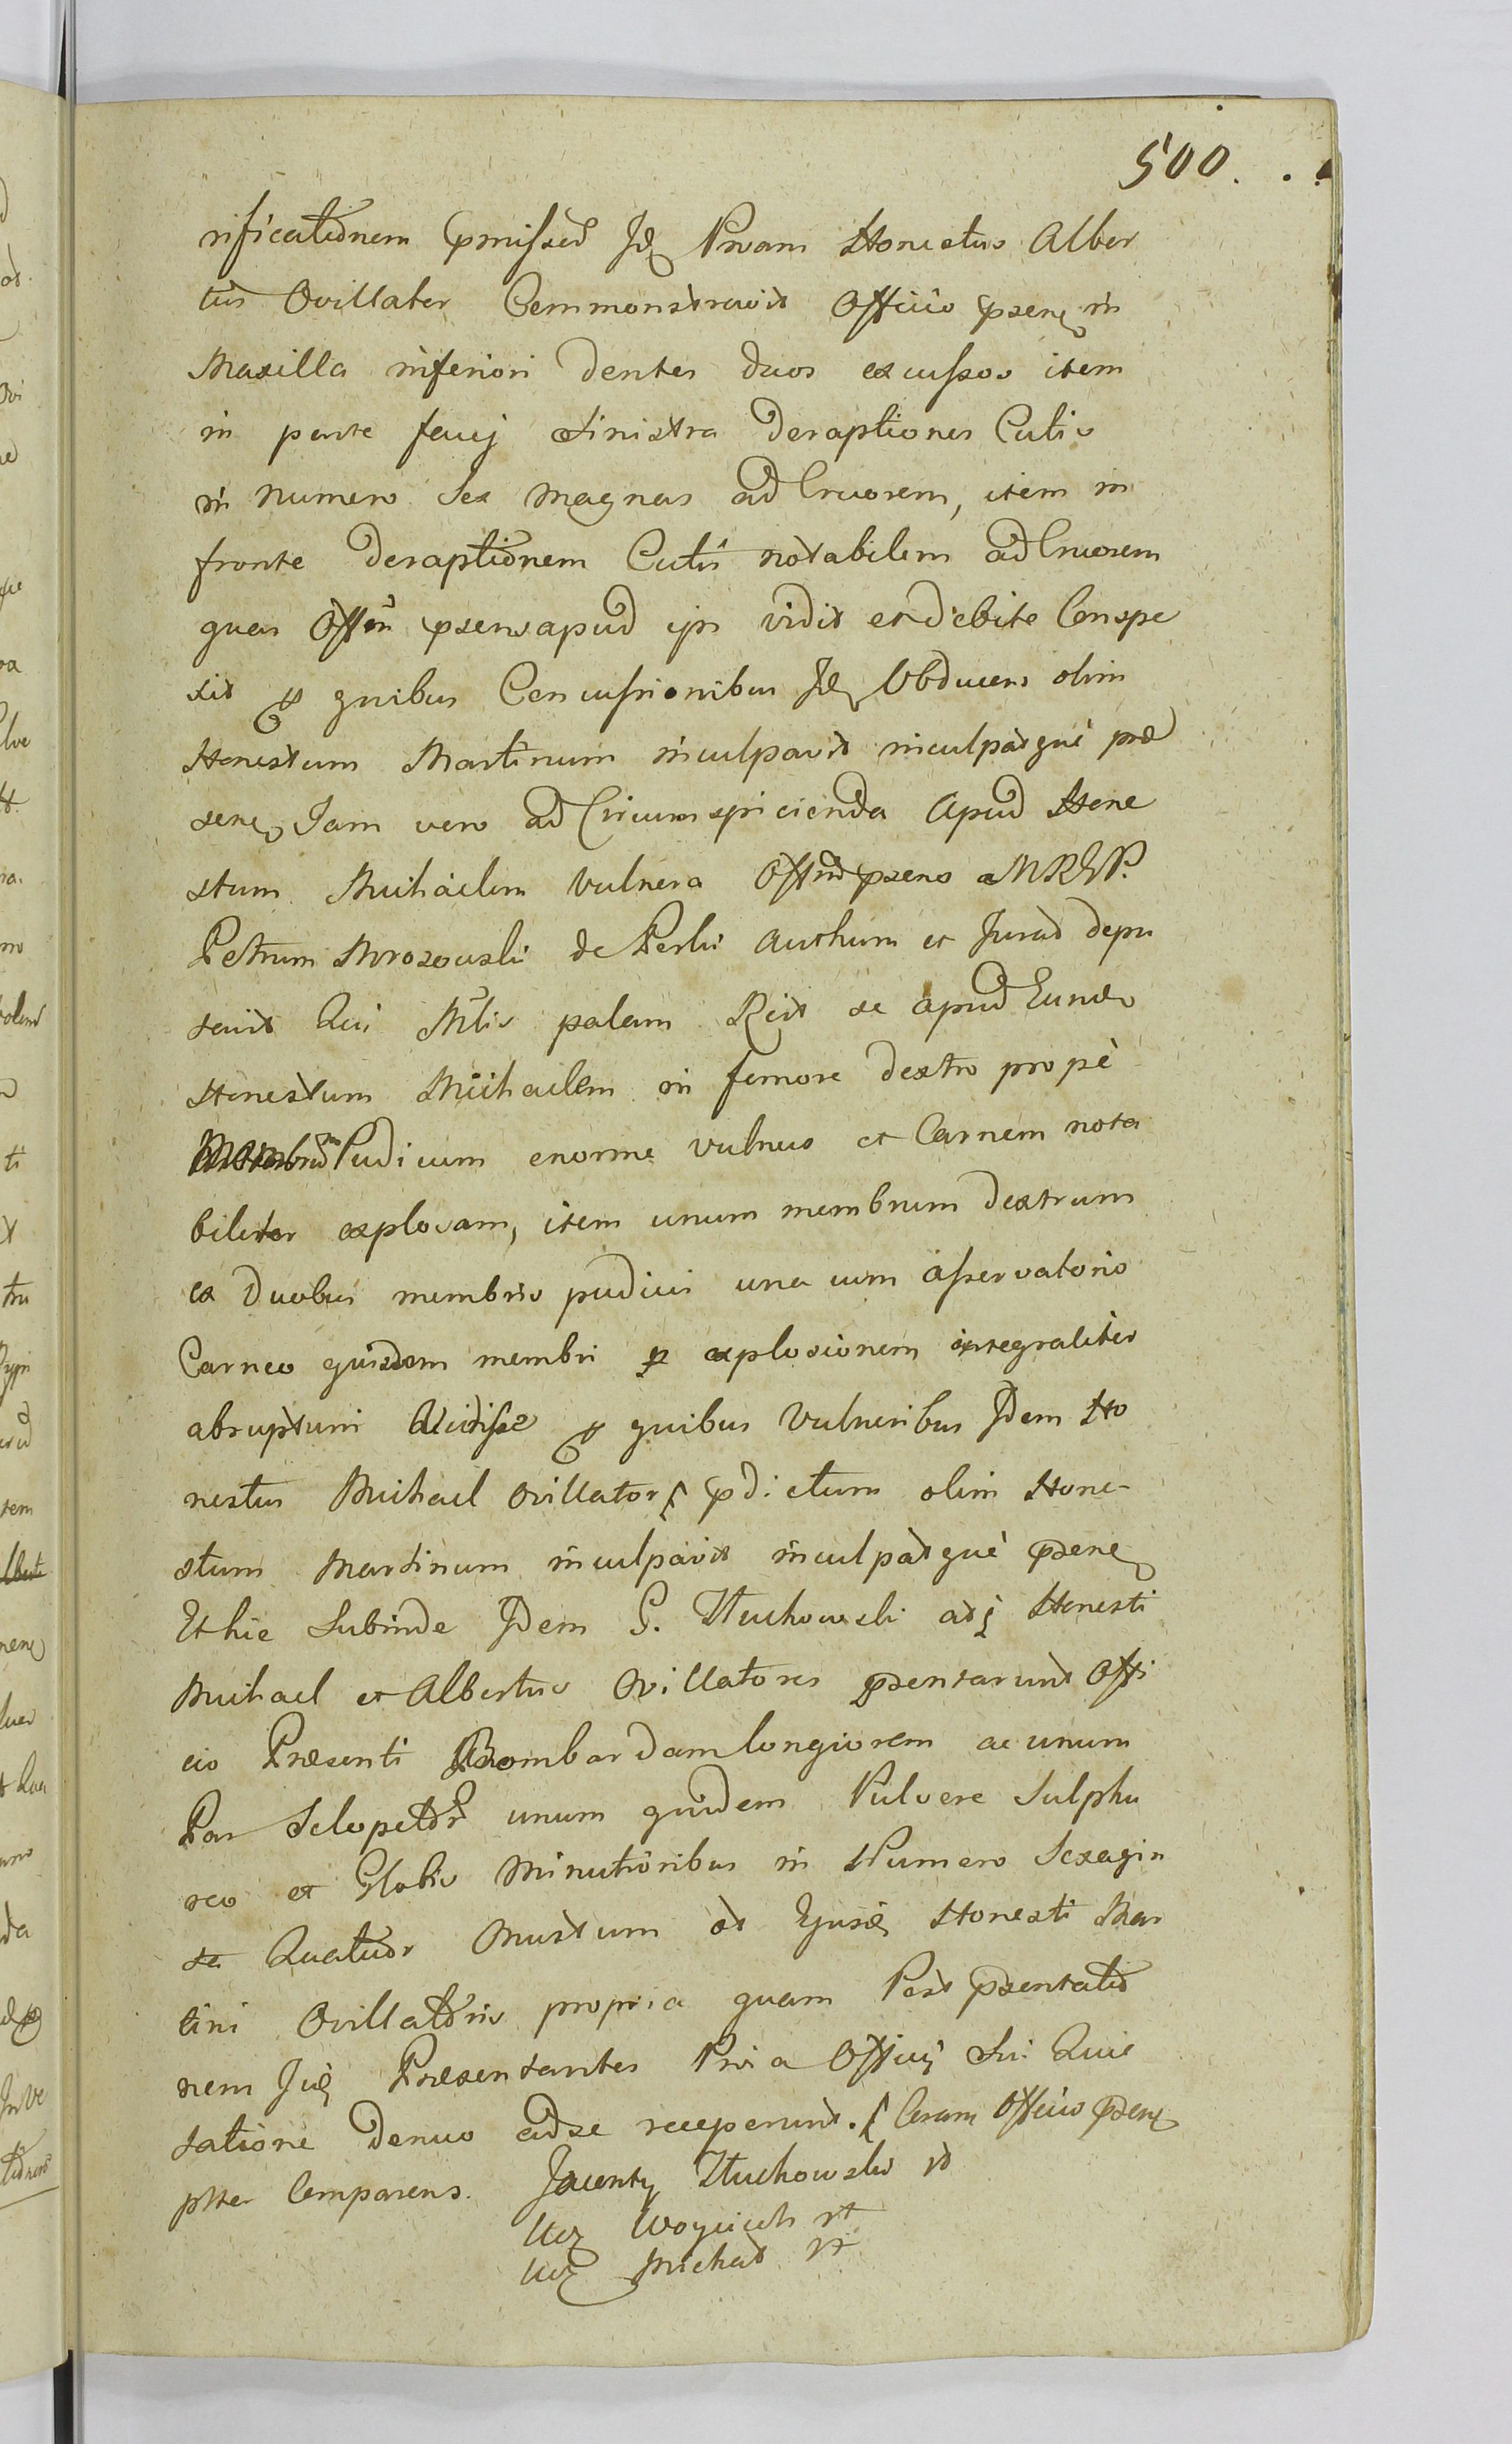 500.
rificationem praemissor Id Privam Honestus Alber
tus Ovillator Commonstravit Officio psen in
Maxilla inferiori dentes duos excussos item
in parte faciej sinistra deraptiones Cutis
in numero sex magnas ad Cruorem, item in
fronte deraptionem Cutis notabilem ad Cruorem
quas Offm psens apud ipm vidit et debite Conspe
xit pro quibus Concussionibus Id Obducens olim
Honestum Martinum inculpavit inculpatque prae
sen Jam vero ad Circumspicienda apud Hone
stum Michaelem Vulnera Offm psens
Petrum Mrozowski de Perki Authum et Jurat depu
tavit Qui Mlis palam Rcit se apud Eund
Honestum Michaelem in femore dextro propè
Membrum Pudicum enorme vulnus et Carnem nota
biliter explosam, item unum membrum dextrum
ex Duobus membris pudicis una cum asservatorio
Carneo quisdem membri p explosionem integraliter
abruptum vidisse pro quibus Vulneribus Idem Ho
nestus Michael ovillator pdictum olim Hone-
stum Martinum inculpavit inculpatquè psen
Et hic Subinde Idem G. Tluchowski atq Honesti
Michael et Albertus Ovillatores psentarunt Offi
cio Præsenti Bombardam longiorem ac unum
Par Sclopetor unum quidem Pulvere Sulphu
reo et Globis Minutioribus in Numero Sexagin
ta Quatuor Onustum et Ejusd Honesti Mar
tini Ovillatoris propria quam Post psentatio
nem Iid Præsentantes Pria Officij Sui Quie
tatione denuo ad se receperunt. Coram Officio psen
plter Comparens. Jacenty Tluchowski
Ucz Woyciech
Ucz Michał